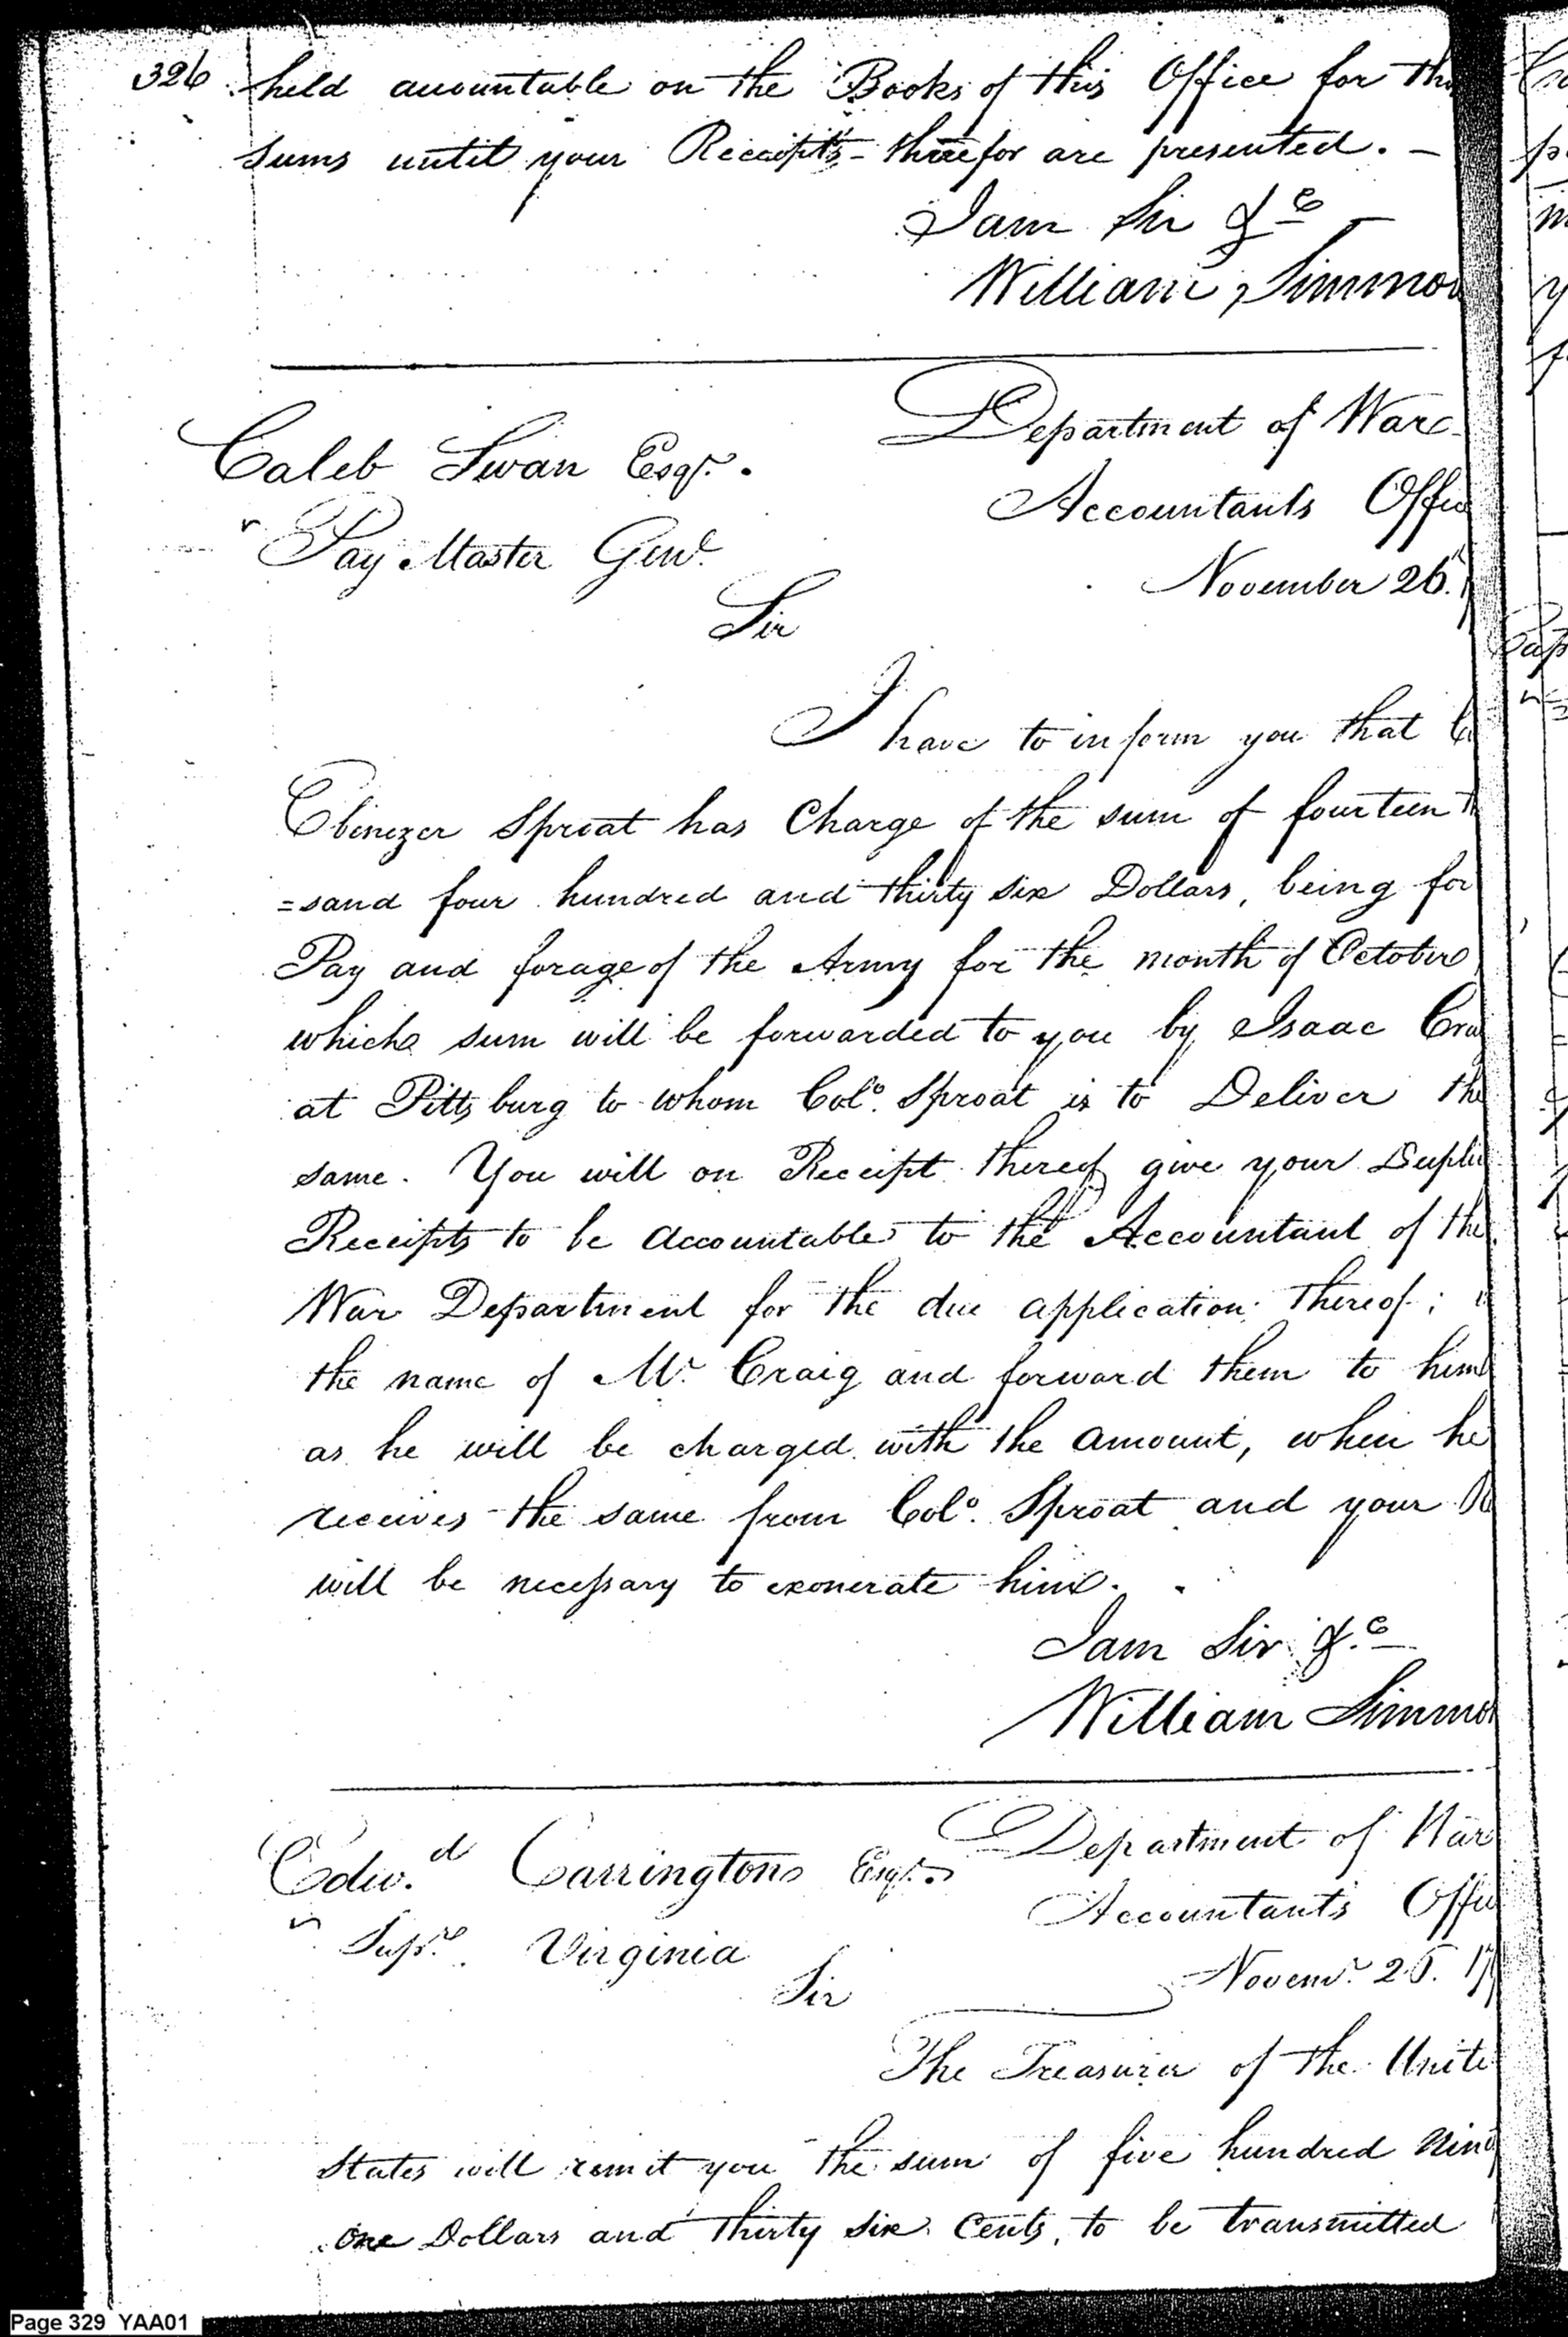 326 held accountable on the Books of this Office for the
sums until your Receipts therefor are presented. —
I am Sir &c
William Simmo
Department of War
Caleb Swan Esqr.
Accountants Offic
Pay Master Genl.
November 26.
Sir
I have to inform you that
Ebenezer Sproat has Charge of the sum of fourteen
=sand four hundred and thirty six Dollars, being for
Pay and forage of the Army for the month of October
which sum will be forwarded to you by Isaac Cra
at Pittsburg to whom Colo. Sproat is to Deliver the
same. You will on Receipt thereof give your Dupli
Receipts to be Accountable to the Accountant of the
War Department for the due application thereof;
the name of Mr. Craig and forward them to him
as he will be charged with the amount, when he
receives the same from Colo. Sproat and your
will be necessary to exonerate him.
I am Sir &c
William Simmo
Department of War
Edwd. Carrington Esqr.
Accountants Offi
Supr. Virginia
Novemr. 25. 17
Sir
The Treasurer of the Unite
States will remit you the sum of five hundred Nin
one Dollars and thirty six Cents, to be transmitted
Page 329 YAA01